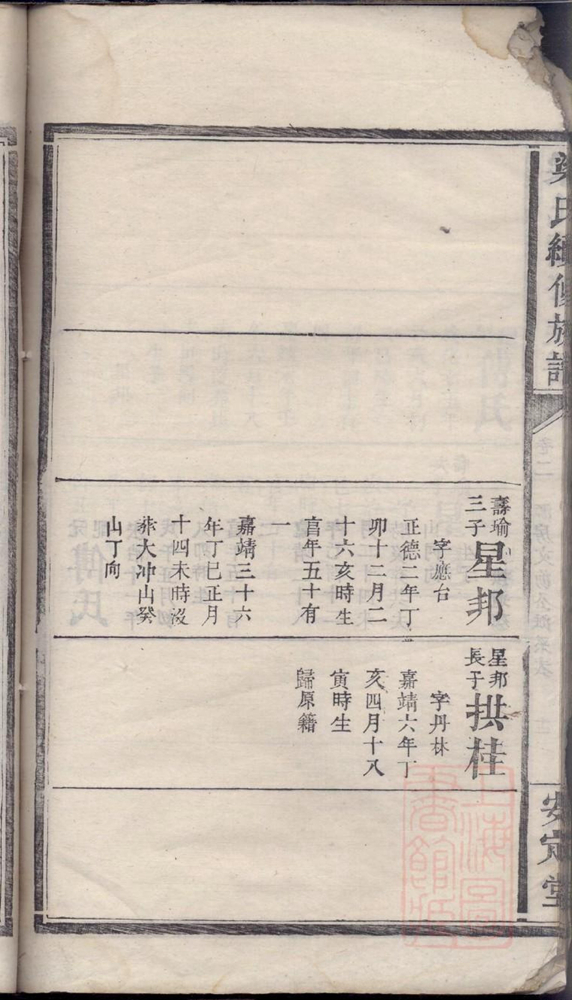 梁氏續修族譜
卷二
安定堂
壽瑜
三子
星邦
字應台
正德二年丁
卯十二月二
十六亥時生
享年五十有
一
嘉靖三十六
年丁巳正月
十四未時沒
葬大冲山癸
山丁向
星邦
長子
拱桂
字丹林
嘉靖六年丁
亥四月十八
寅時生
歸原籍
上海圖書館藏